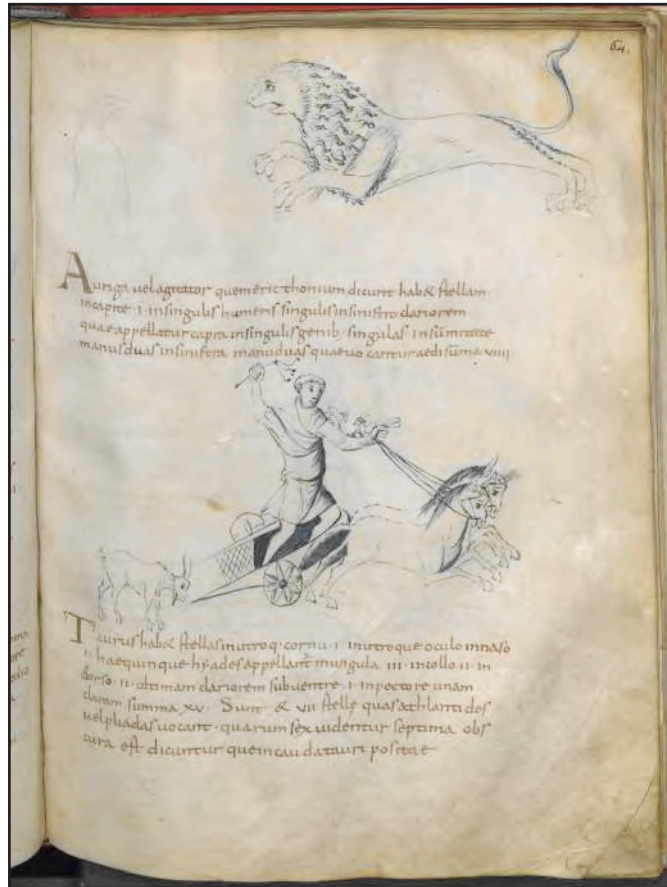 64.
Auriga uel agitator quem ericthonium dicunt habet stellam
incapite · i · insingulis humeris singulis insinistro clariorem
quae appellatur capra insingulis genib; singulas insumitate
manus duas insinistra manu duas quae uocantur aedi suma viiii
Taurus habet stellas inutroq· cornu · i · inutroque oculo innaso
i · hae quinque hyades appellant inungula · iii · incollo · ii · in
dorso · ii · ultimam clariorem subuentre · i · inpectore unam
claram summa xv · Sunt & vii stelle quas athlantides
uel pliadas uocant · quarum sex uidentur septima obs
cura est dicuntur que incauda tauri positae